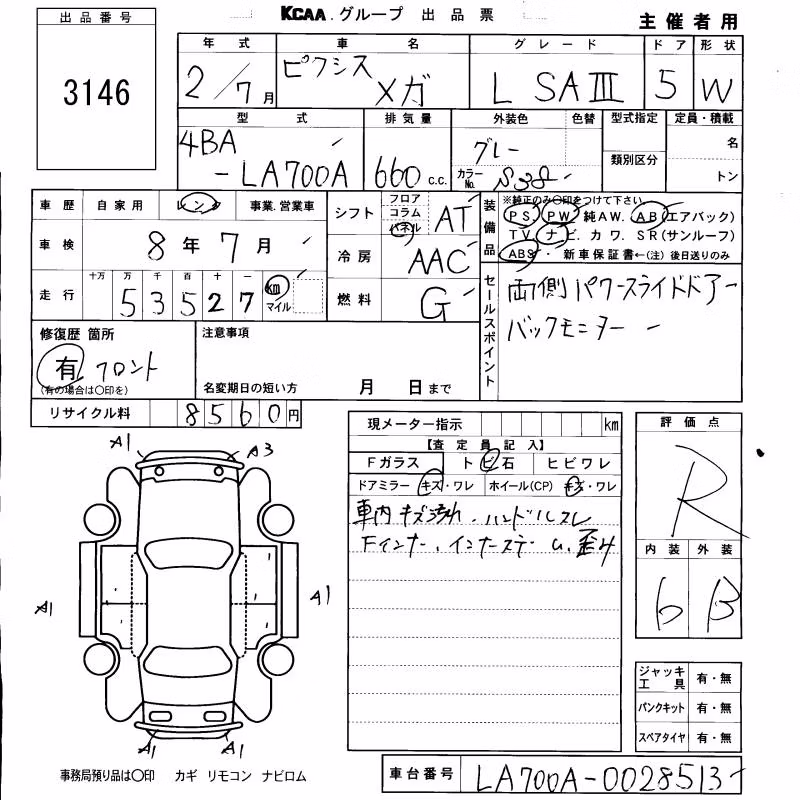 出品番号
3146
KCAA.グループ 出品票
主催者用
年式
2/7月
車名
ピクシス
メガ
グレード
L SAⅢ
ドア
5
形状
W
型式
4BA
-LA700A
排気量
660 c.c.
外装色
グレー
色替
カラーNo.
S38
型式指定
類別区分
定員・積載
名
トン
車歴 自家用 レンタ 事業.営業車
車検 8年7月
走行 十万 万 千 百 十 一
53527 km マイル
シフト フロア コラム パネル AT
冷房 AAC
燃料 G
装備品
※純正のみ〇印をつけて下さい
PS. PW. 純AW. AB(エアバック)
TV. ナビ. カワ. SR(サンルーフ)
ABS・ 新車保証書←(注) 後日送りのみ
セールスポイント
両側パワースライドドアー
バックモニター
修復歴 箇所
有 フロント
(有の場合は〇印を)
注意事項
名変期日の短い方 月 日まで
リサイクル料 8560円
現メーター指示 km
【査定員記入】
Fガラス トビ石 ヒビワレ
ドアミラー キズ・ワレ ホイール(CP) キズ・ワレ
車内キズ汚れ.ハンドルスレ
Fインナー.インナーステー 歪み
評価点
R
内装 外装
6 B
ジャッキ工具 有・無
パンクキット 有・無
スペアタイヤ 有・無
A1
A3
A1
A1
A1
A1
事務局預り品は〇印 カギ リモコン ナビロム
車台番号 LA700A-0028513